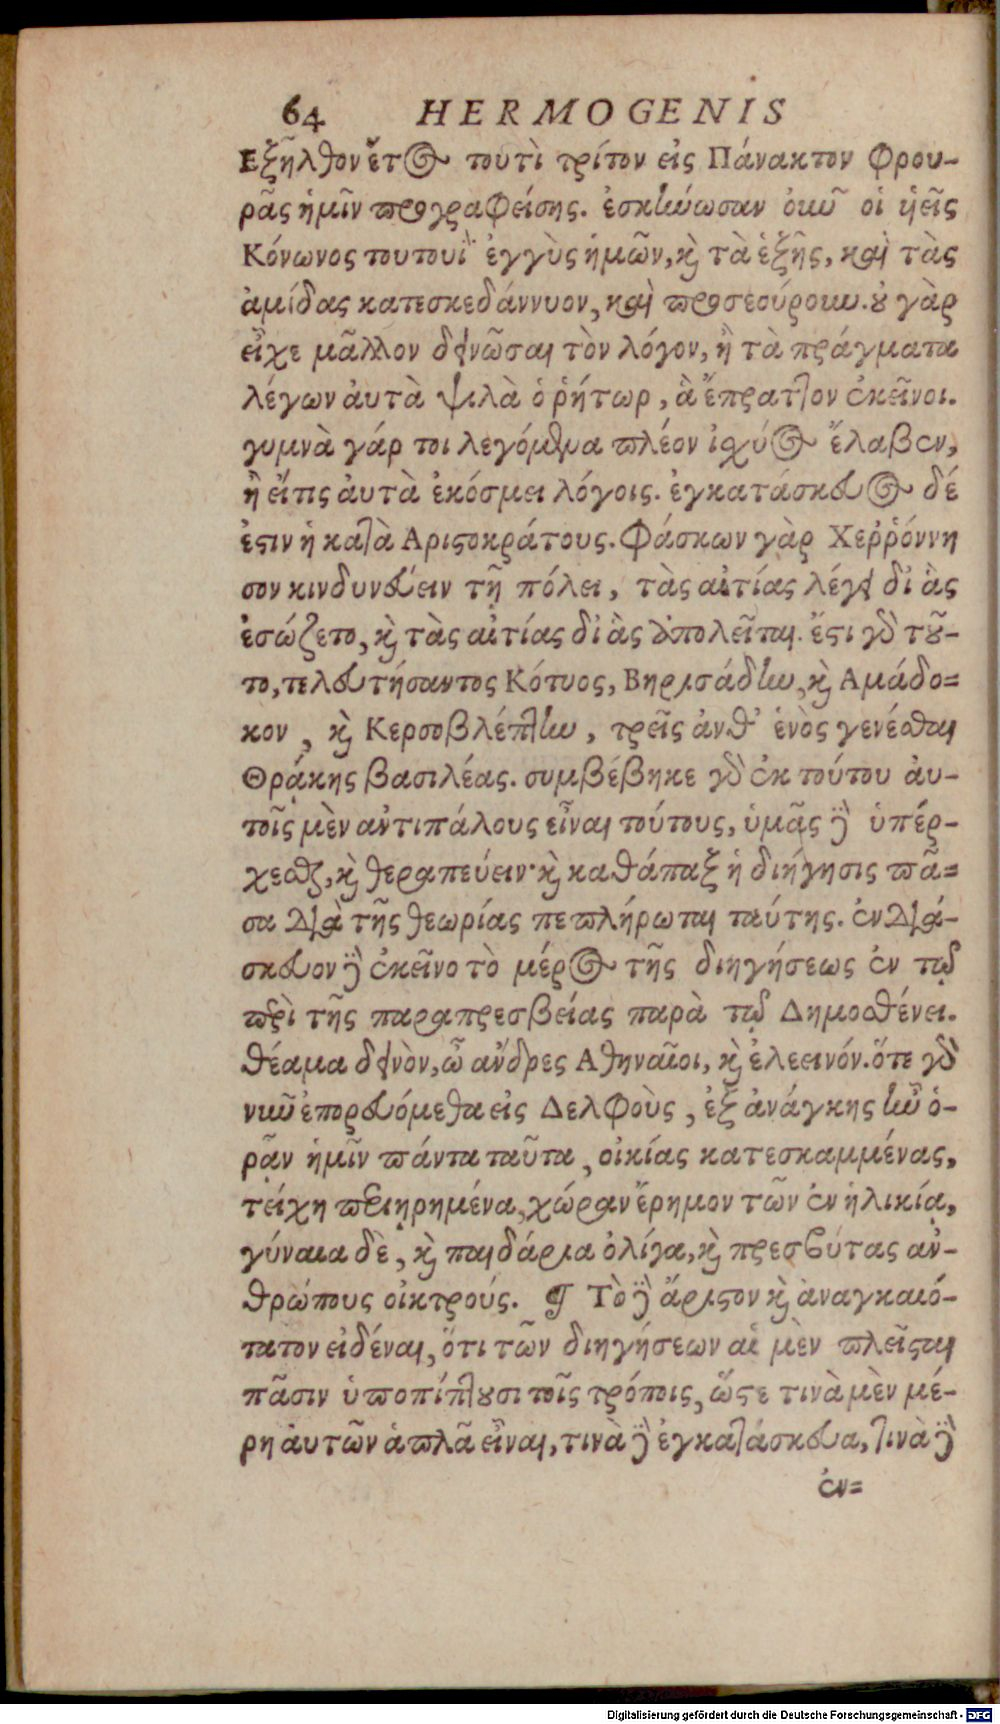 64 HERMOGENIS
Εξῆλθον ἔτος τουτὶ τρίτον εἰς Πάνακτον Φρου-
ρᾶς ἡμῖν προγραφείσης. ἐσκήνωσαν οὖν οἱ ὑεῖς
Κόνωνος τουτουῒ ἐγγὺς ἡμῶν, καὶ τὰ ἑξῆς, καὶ τὰς
ἀμίδας κατεσκεδάννυον, καὶ προσεούρουν. οὐ γὰρ
εἶχε μᾶλλον δεινῶσαι τὸν λόγον, ἢ τὰ πράγματα
λέγων ἀυτὰ ψιλὰ ὁ ῥήτωρ, ἃ ἔπραττον ἐκεῖνοι.
γυμνὰ γάρ τοι λεγόμενα πλέον ἰσχύος ἔλαβεν,
ἢ εἴτις ἀυτὰ ἐκόσμει λόγοις. ἐγκατάσκευος δέ
ἐστιν ἡ κατὰ Αριστοκράτους. Φάσκων γὰρ Χεῤῥόννη
σον κινδυνεύειν τῇ πόλει, τὰς αἰτίας λέγει δἰ ἃς
ἐσώζετο, καὶ τὰς αἰτίας δἰ ἃς ἀπολεῖται. ἔστι γὰρ τοῦ-
το, τελευτήσαντος Κότυος, Βηρισάδην, καὶ Αμάδο-
κον, καὶ Κερσοβλέπτην, τρεῖς ἀνθ’ ἑνὸς γενέσθαι
Θρᾴκης βασιλέας. συμβέβηκε γὰρ ἐκ τούτου ἀυ-
τοῖς μὲν ἀντιπάλους εἶναι τούτους, ὑμᾶς δὲ ὑπέρ-
χεσθαι, καὶ θεραπεύειν· καὶ καθάπαξ ἡ διήγησις πᾶ-
σα διὰ τῆς θεωρίας πεπλήρωται ταύτης. ἐνδιά-
σκευον δὲ ἐκεῖνο τὸ μέρος τῆς διηγήσεως ἐν τῷ
περὶ τῆς παραπρεσβείας παρὰ τῷ Δημοσθένει.
θέαμα δεινὸν, ὦ ἄνδρες Αθηναῖοι, καὶ ἐλεεινόν. ὅτε γὰρ
νῦν ἐπορευόμεθα εἰς Δελφοὺς, ἐξ ἀνάγκης ἦν ὁ-
ρᾷν ἡμῖν πάντα ταῦτα, οἰκίας κατεσκαμμένας,
τείχη περιῃρημένα, χώραν ἔρημον τῶν ἐν ἡλικίᾳ,
γύναια δὲ, καὶ παιδάρια ὀλίγα, καὶ πρεσβύτας ἀν-
θρώπους οἰκτρούς. ¶ Τὸ δὲ ἄριστον καὶ ἀναγκαιό-
τατον εἰδέναι, ὅτι τῶν διηγήσεων αἱ μὲν πλεῖσται
πᾶσιν ὑποπίπτουσι τοῖς τρόποις, ὥστε τινὰ μὲν μέ-
ρη ἀυτῶν ἁπλᾶ εἶναι, τινὰ δὲ ἐγκατάσκευα, τινὰ δὲ
ἐν-
Digitalisierung gefördert durch die Deutsche Forschungsgemeinschaft - DFG